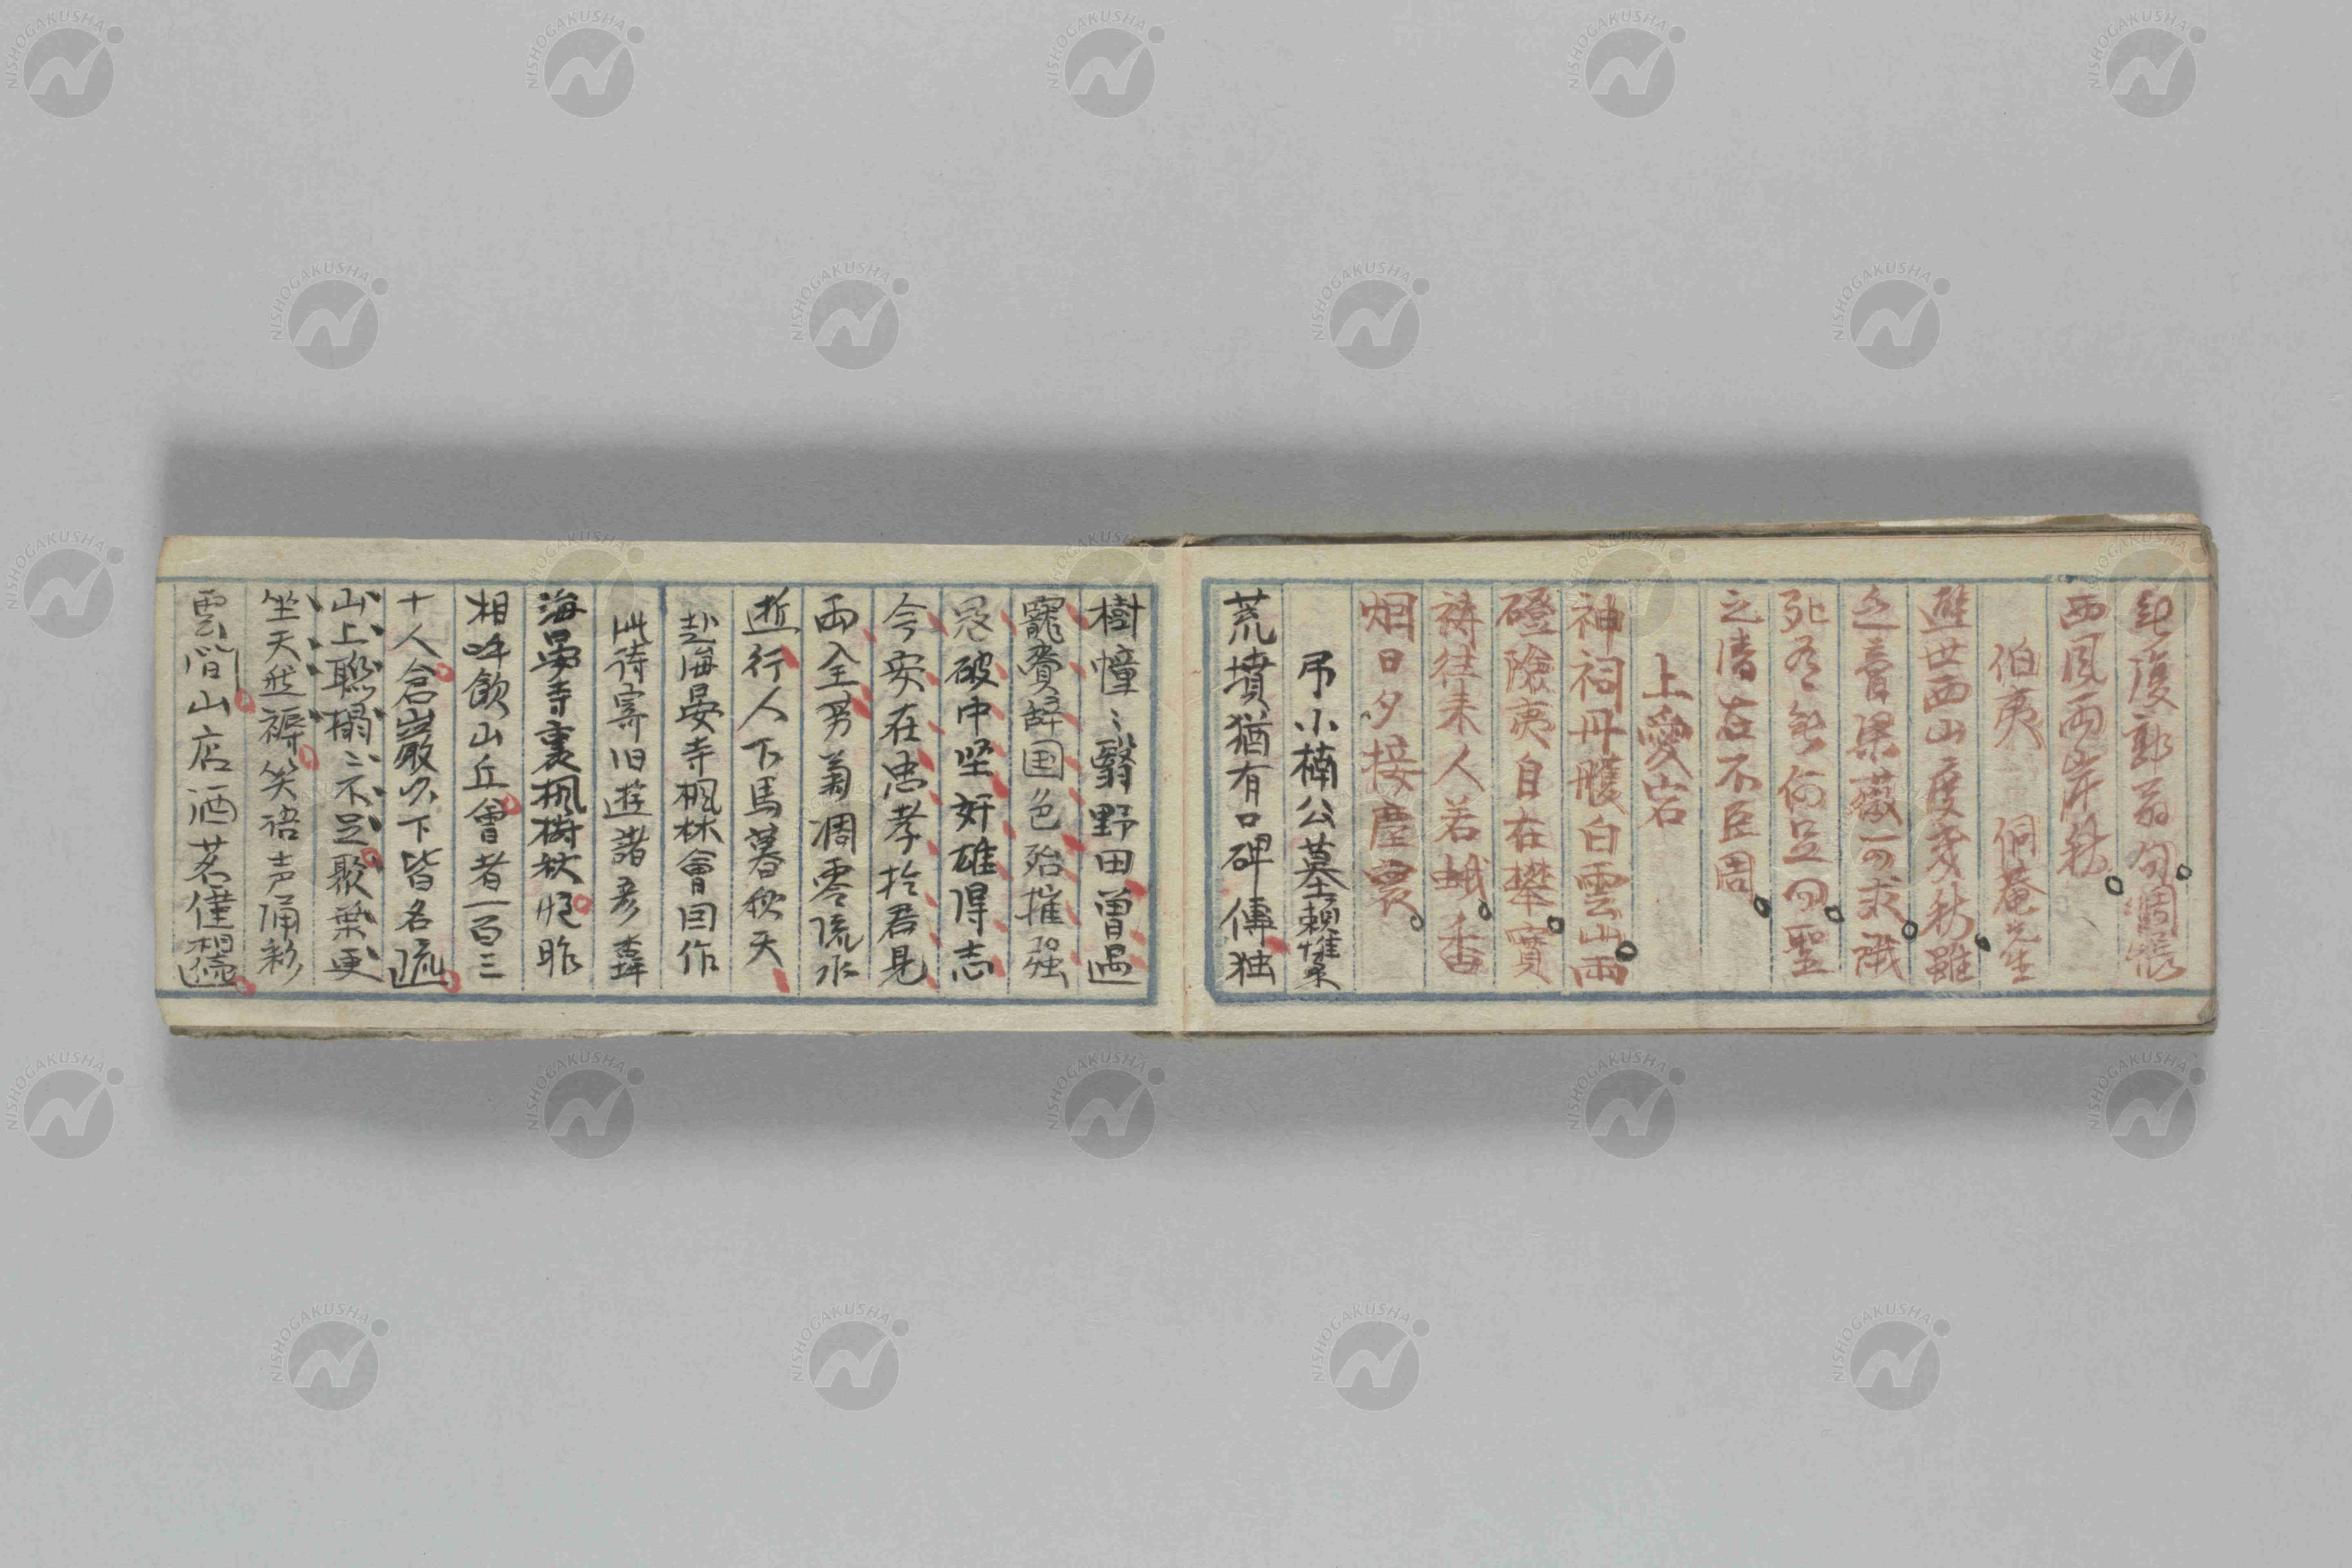 西風両岸秋
伯夷 侗菴先生
遯世西山度幾秋雖
乏膏粱薇可求餓
死有無何足問聖
之清在不臣周
上愛宕
神祠丹雘白雲山両
磴險夷自在攀賓
祷往来人若蛾香
烟日夕接塵寰
弔小楠公墓頼惟柔
荒墳猶有口碑傳独
樹幢々翳野田曽過
寵賚辞国色殆摧強
寇破中堅奸雄得志
今安在忠孝於君見
両全男菊凋零流水
逝行人下馬暮秋天
赴海晏寺楓林會因作
此待寄旧遊諸彦
海晏寺裏楓樹秋昨
相呼飲山丘會者一百三
十人合巌以下皆名流
山上聯榻々不足聚葉更
坐天然褥笑語声涌彩
雲間山店酒茗僅
NISHOGAKUSHA